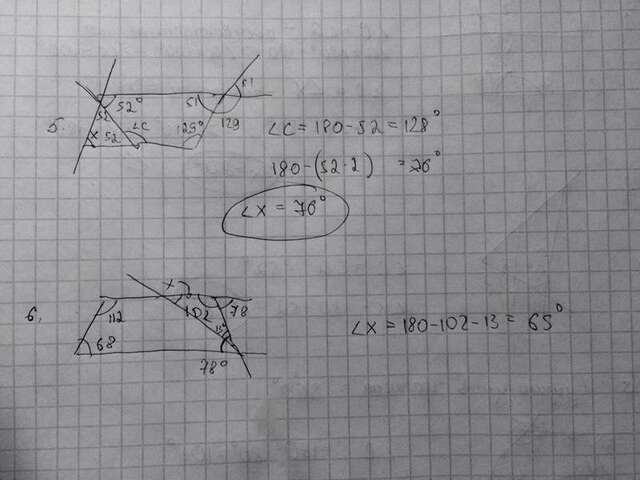 51
52° 51
52 129
5. ∠C 129°
x 52
∠C = 180-52 = 128°
180-(52·2) = 76°
∠X = 76°
x
6. 112 102 78
13
68
78°
∠X = 180-102-13 = 65°